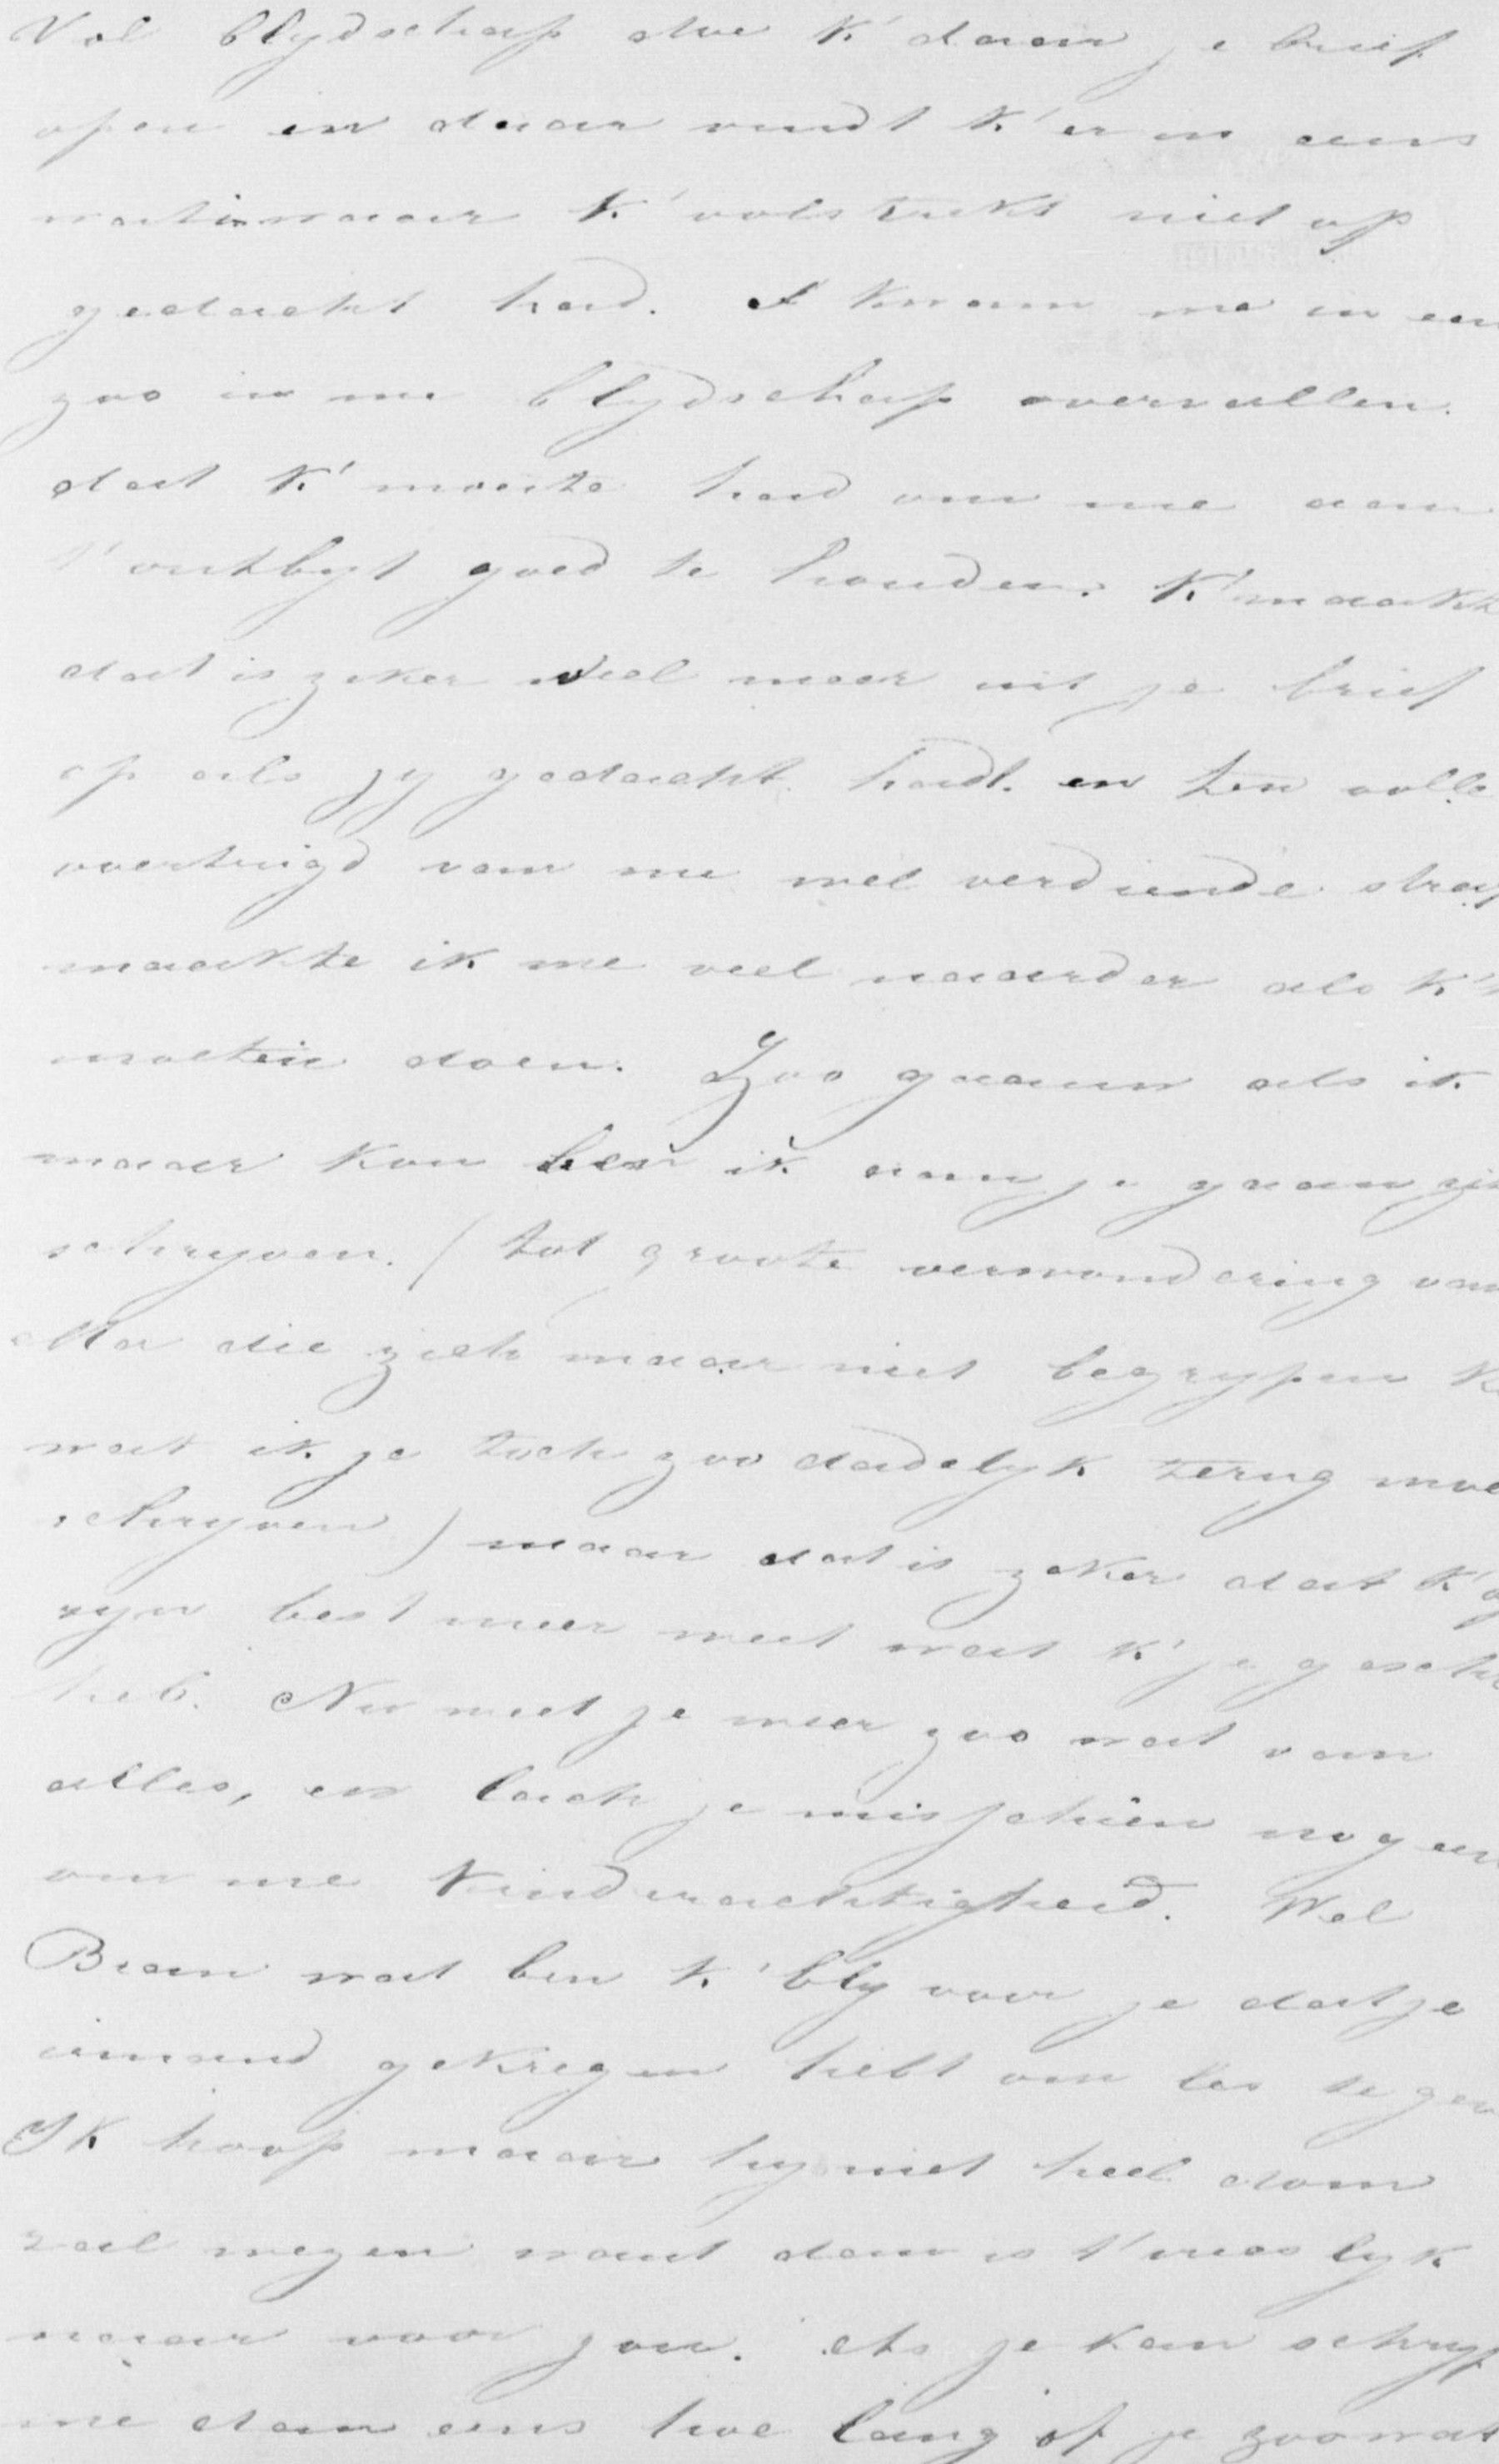 Vol blydschap doe k' daar je brief
open en daar vindt k' er in eens
wat in waar k' volstrekt niet op
gedacht had. t kwam me in een
zoo in me blydschap overvallen.
dat k' moeite had om me aan
t' ontbyt goed te houden. k' maakte
dat is zeker veel meer uit je brief
op als jy gedacht hadt. en ten volle
overtuigd van me wel verdiende straf
maakte ik me veel naarder als k'
moeten doen. Zoo gauw als ik
maar kon ben ik aan je gaan
schryven. (tot groote verwondering van
die zich maar niet begrypen
wat ik je toch zoo dadelyk terug moe
schryven) maar dat is zeker dat k'
zyn best meer weet wat k' je gesch
heb. Nu weet je weer zoo wat van
alles, en lach je misschien nog een
om me kinderachtigheid. Wel
Bram wat ben k' bly voor je dat je
iemand gekregen hebt om les te gev
Ik hoop maar hy niet heel dom
zal wezen want dan is t' vreeslyk
naar voor jou. Als je kan schryf
me dan eens hoe lang of je zoo wat